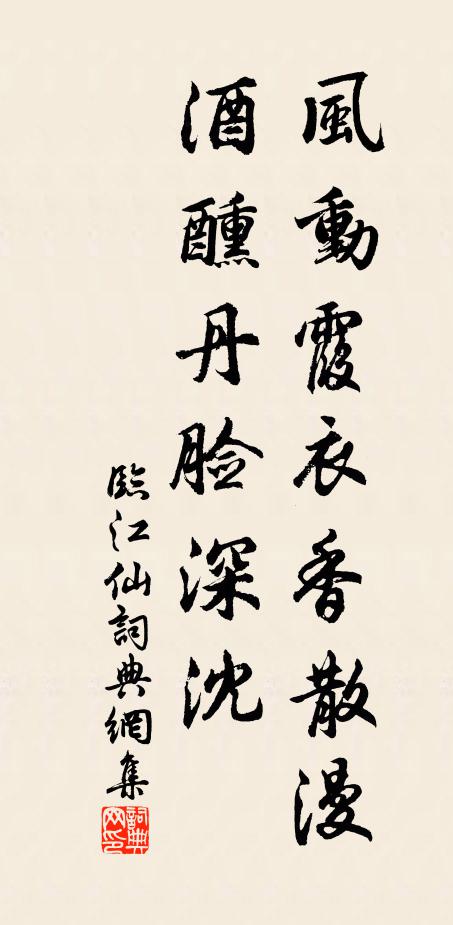 風動霞衣香散漫
酒醺丹脸深沈
臨江仙詞典網集
詞典网印